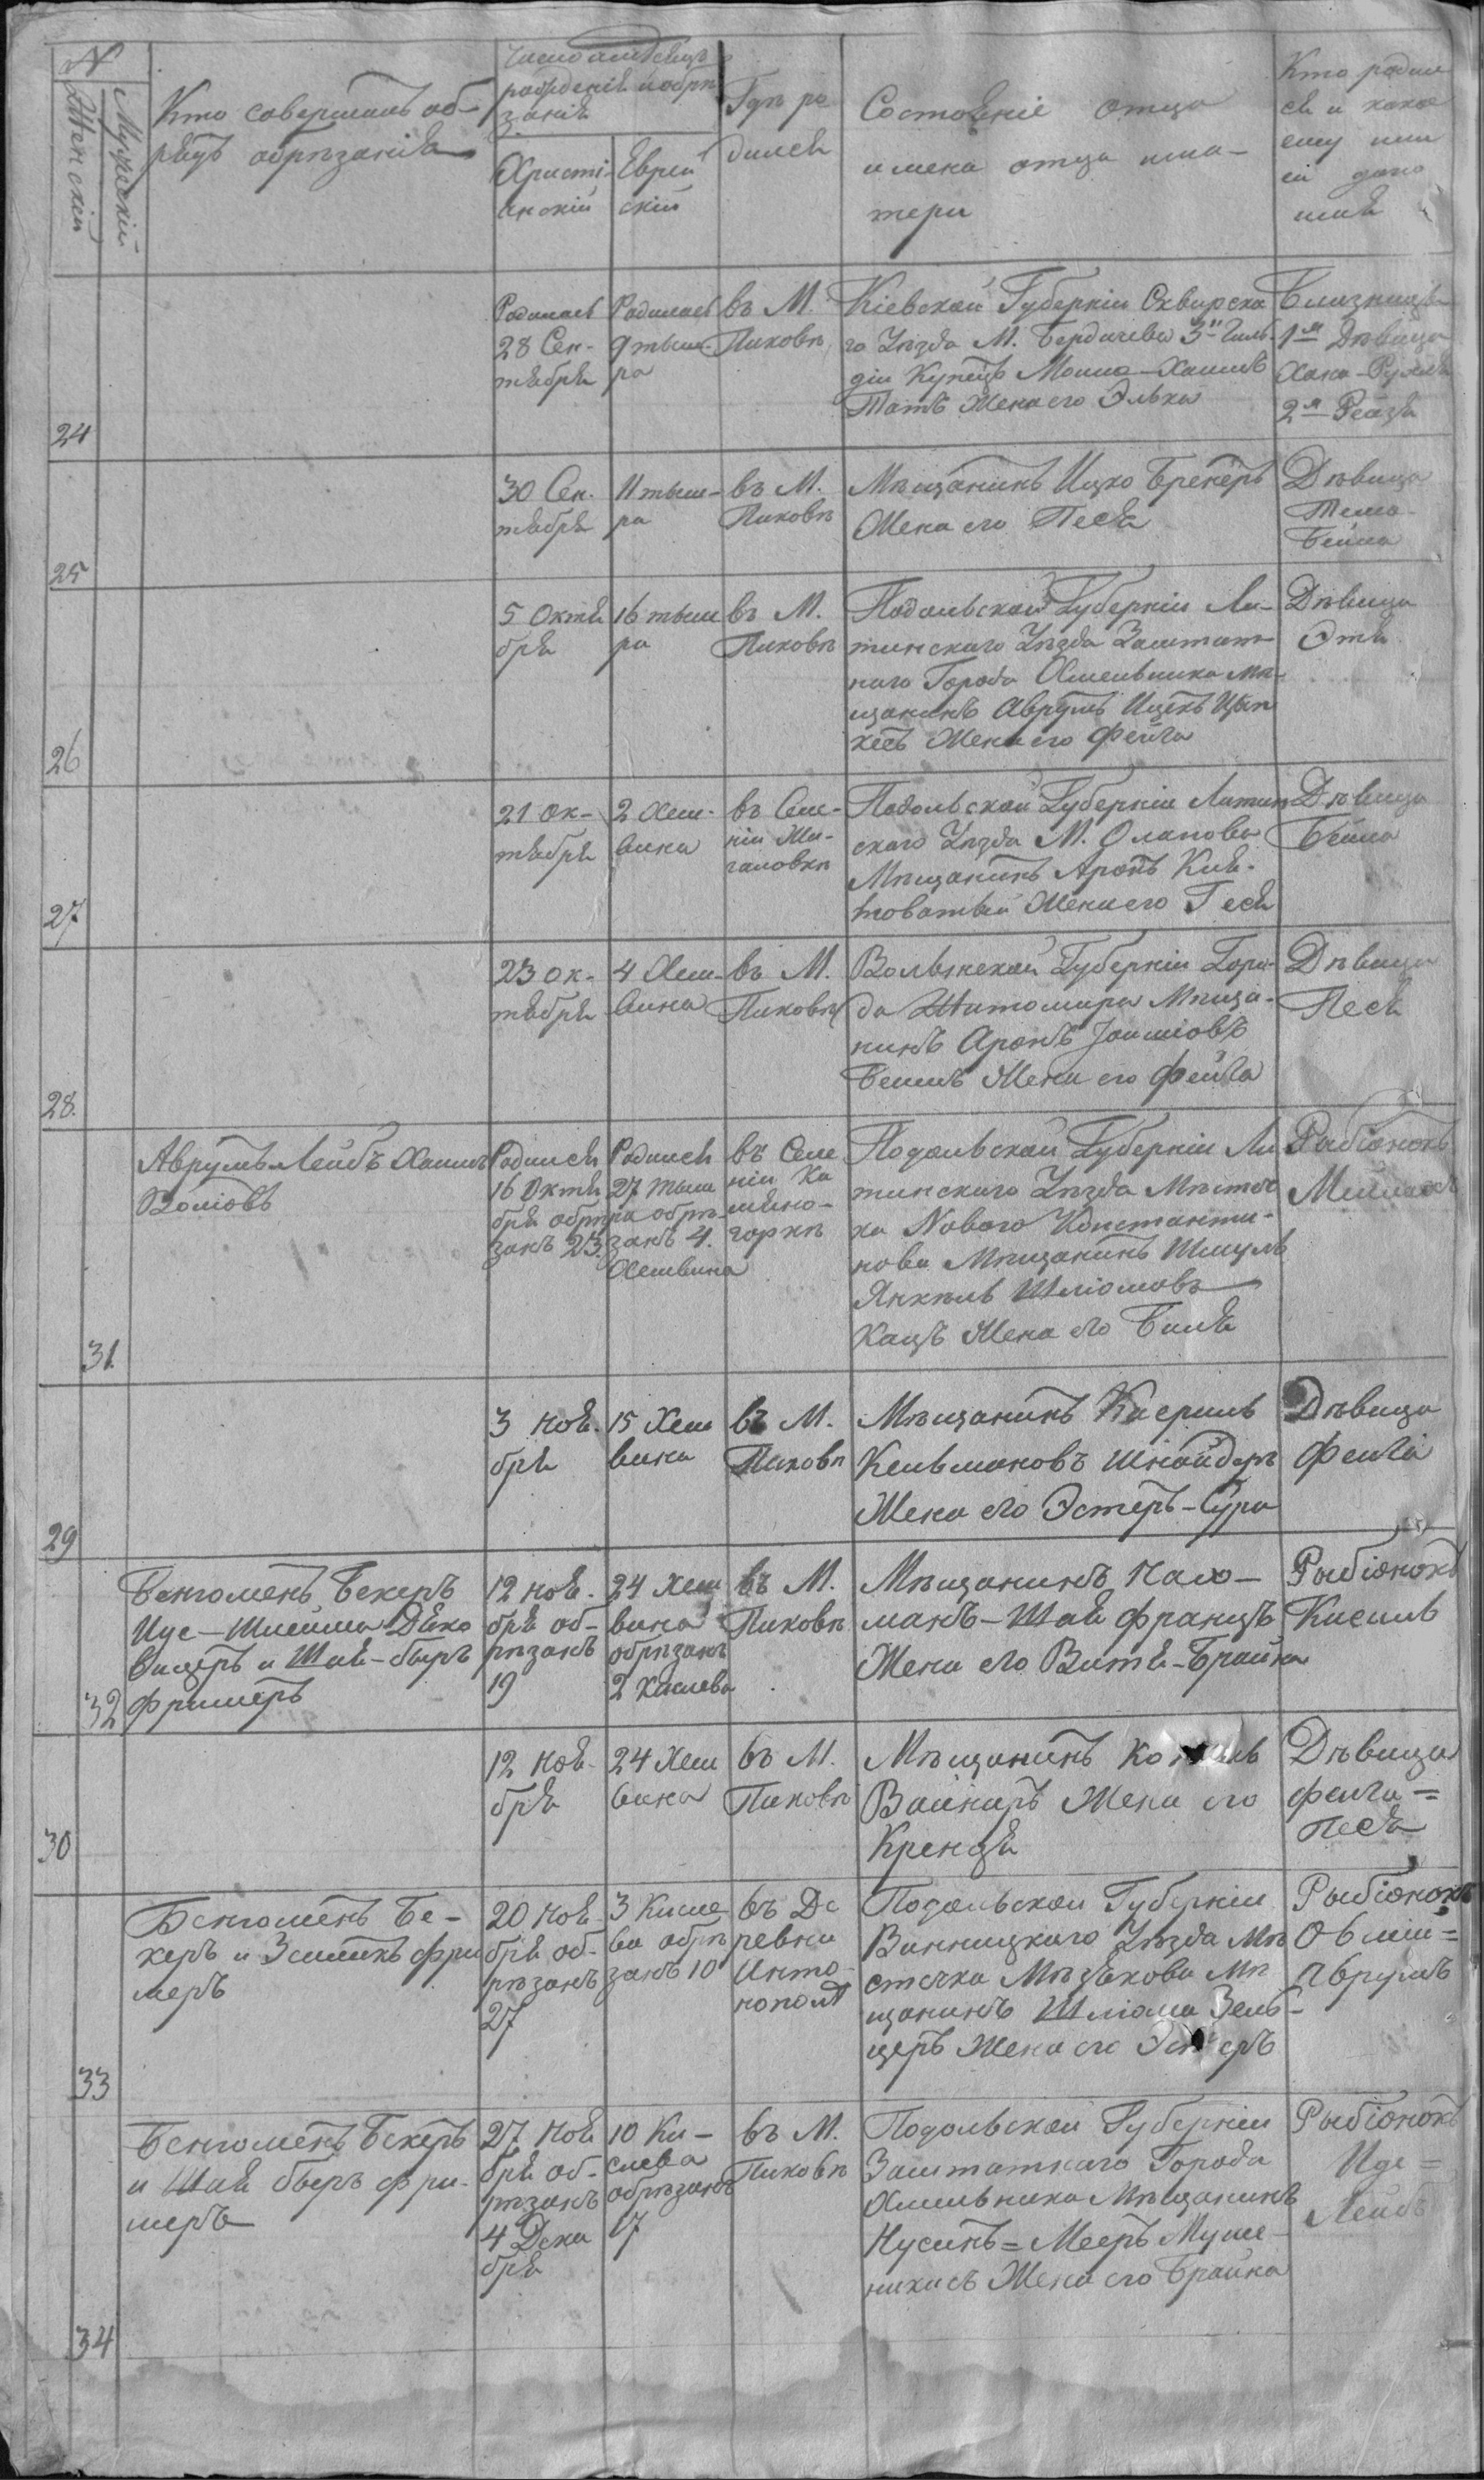 №
Женскій
Мужскій
Кто совершалъ об-
рядъ обрѣзанія
Число и мѣсяцъ
рожденія и обрѣ
занія
Христі-
анскій
Еврей
скій
Гдѣ ро
дился
Состояніе отца
имена отца и ма-
тери
Кто родил
ся и какое
ему или
ей дано
имя
24
Родилась
28 Сен-
тября
Родилась
9 тыш-
ра
въ М.
Пиковѣ
Кіевской Губерніи Сквирска
го Уѣзда М. Бердичева 3й Гиль-
діи Купецъ Мошко-Хаимъ
Жена его Элька
Близницы
1я Дѣвица
Хана-Рухля
2я Рейзя
25
30 Сен-
тября
11 тыш-
ра
въ М.
Пиковѣ
Мѣщанинъ Ицко Бренеръ
Жена его Песя
Дѣвица
Тема-
Бейла
26
5 Октя
бря
16 тыш
ра
въ М.
Пиковѣ
Подольской Губерніи Ли-
тинскаго Уѣзда Заштат-
наго Города Хмельника мѣ-
щанинъ Аврумъ Ицекъ
Жена его Фейга
Дѣвица
Этя
27
21 Ок-
тября
2 Хеш-
вина
въ Селе-
ніи Жи-
галовкѣ
Подольской Губерніи Литин
скаго Уѣзда М. Уланова
Мѣщанинъ Аронъ Кия-
товатый Жена его Геся
Дѣвица
Бейла
28
23 Ок-
тября
4 Хеш-
вина
въ М.
Пиковѣ
Волынской Губерніи Горо-
да Житомира Мѣща-
нинъ Аронъ
Жена его Фейга
Дѣвица
Песя
31
Аврумъ Лейбъ Хаимъ
Воліовъ
Родился
16 Октя
бря обрѣ
занъ 23.
Родился
27 тыш
ра обрѣ-
занъ 4.
Хешвина
въ Селе
ніи Ка
мено-
горкѣ
Подольской Губерніи Ли
тинскаго Уѣзда Мѣстеч
ка Нового Константи-
нова Мѣщанинъ Шмуль
Янкель Шліомовъ
Кацъ Жена его Биля
Рыбіонокъ
29
3 Ноя-
бря
15 Хеш
вина
въ М.
Пиковѣ
Мѣщанинъ Касриль
Кельмановъ Шнайдеръ
Жена его Эстеръ-Сура
Дѣвица
Фейга
32
Бенюменъ Бекеръ
Иде-Шлейма Дяко
вицеръ и Шая-беръ
Фримеръ
12 Ноя-
бря об-
рѣзанъ
19
24 Хеш
вина
обрѣзанъ
2 Кислева
въ М.
Пиковѣ
Мѣщанинъ Нало-
манъ-Шая Францъ
Жена его Витя-Брайна
Рыбіонокъ
Кисиль
30
12 Ноя-
бря
24 Хеш
вина
въ М.
Пиковѣ
Мѣщанинъ
Вайнеръ Жена его
Крендзя
Дѣвица
Фейга=
Песя
33
Бенюменъ Бе-
керъ и Зейликъ Фри
меръ
20 Ноя-
бря об-
рѣзанъ
27
3 Кисле
ва обрѣ
занъ 10
въ Де
ревни
Анто-
нополѣ
Подольской Губерніи
Винницкаго Уѣзда Мѣ
стечка Мѣзякова Мѣ
щанинъ Шліома Зель-
церъ Жена его Эстеръ
Рыбіонокъ
Овшій=
Аврумъ
34
Бенюменъ Бекеръ
и Шая беръ Фри-
меръ
27 Ноя
бря об-
рѣзанъ
4 Дека
бря
10 Ки-
слева
обрѣзанъ
17
въ М.
Пиковѣ
Подольской Губерніи
Заштатнаго Города
Хмельника Мѣщанинъ
Нусинъ=Мееръ Муше-
никисъ Жена его Брайна
Рыбіонокъ
Иде=
Лейбъ